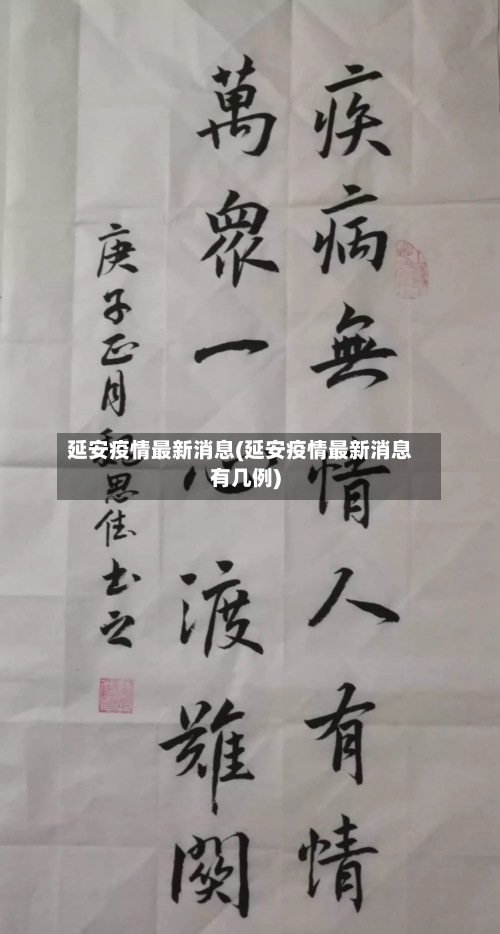 疾病無情人有情
萬眾一心渡難關
庚子正月魏思佳书之
延安疫情最新消息(延安疫情最新消息
有几例)